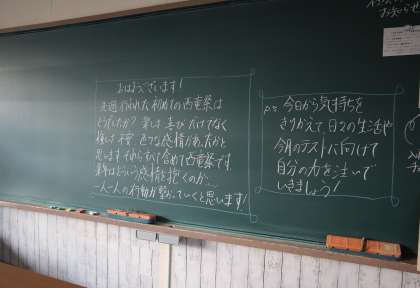 おはようございます!
先週行われた初めての西竜祭は
どうでしたか? 楽しさ、喜びだけでなく
悔しさ、不安、色々な感情があったかと
思います。それらすべて含めて西竜祭です。
来年はどういう感情を抱くのか、
一人一人の行動が繋がっていくと思います!
P.S. 今日から気持ちを
きりかえて、日々の生活や
今月のテストに向けて
自分の力を注いで
いきましょう!
お知らせ